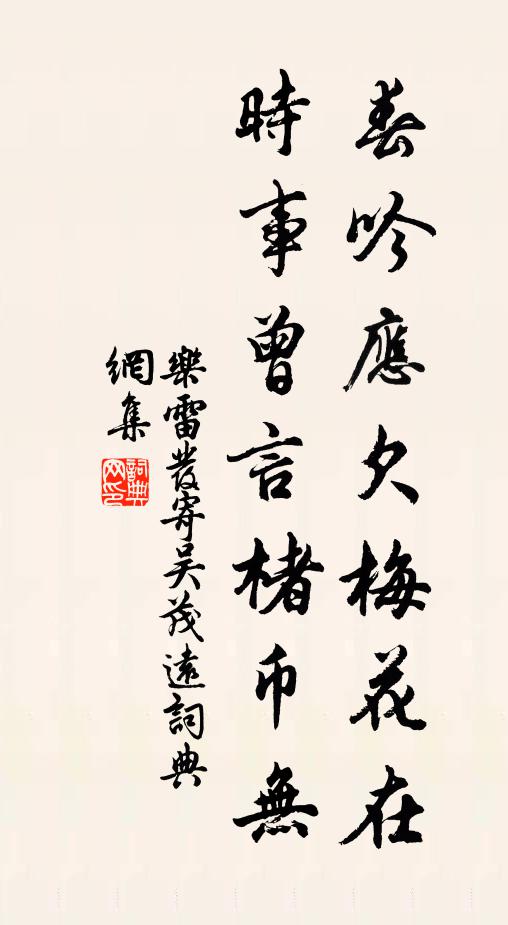 春吟應欠梅花在
時事曾言楮币無
樂雷發寄吴茂遠詞典
網集
詞典網印